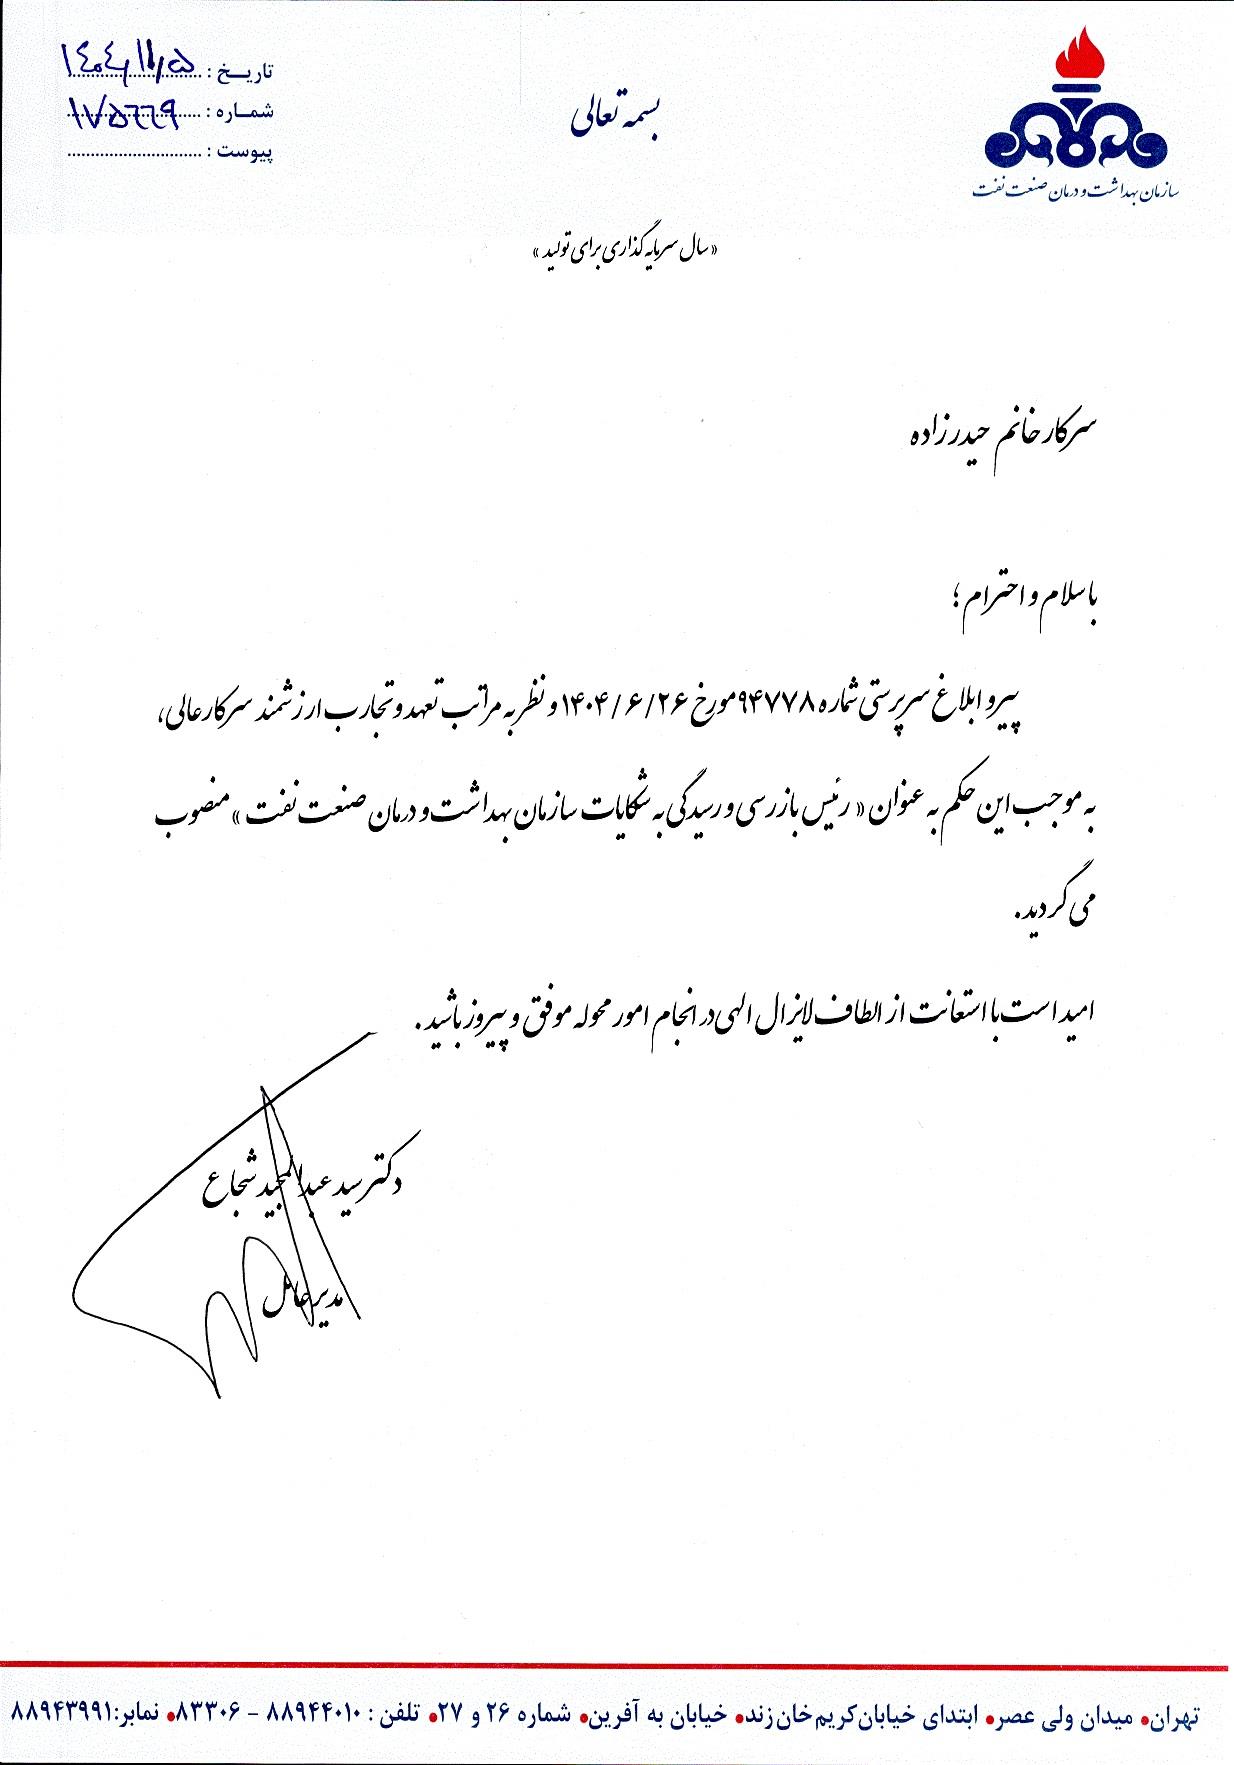 تاریخ : ۱۴۰۴/۱۱/۵
شماره : ۱۷۵۶۶۹
پیوست :
بسمه تعالی
سازمان بهداشت و درمان صنعت نفت
«سال سرمایه گذاری برای تولید»
سرکار خانم حیدرزاده
با سلام و احترام ؛
پیرو ابلاغ سرپرستی شماره ۹۴۷۷۸ مورخ ۱۴۰۴/۶/۲۶ و نظر به مراتب تعهد و تجارب ارزشمند سرکار عالی،
به موجب این حکم به عنوان « رئیس بازرسی و رسیدگی به شکایات سازمان بهداشت و درمان صنعت نفت » منصوب
می گردید.
امید است با استعانت از الطاف لایزال الهی در انجام امور محوله موفق و پیروز باشید.
دکتر سید عبدالمجید شجاع
مدیرعامل
تهران• میدان ولی عصر• ابتدای خیابان کریم خان زند• خیابان به آفرین• شماره ۲۶ و ۲۷• تلفن : ۸۸۹۴۴۰۱۰ - ۸۳۳۰۶• نمابر:۸۸۹۴۳۹۹۱